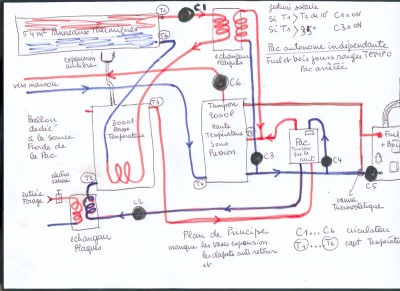 54 m² Panneaux Thermiques
T1
C1
T6
echangeur
Plaques
primaire solaire
Si T1 > T6 de 10° C1=ON
Si T1 > 35° C3=ON
Pac autonome indépendante
Fuel et bois jours rouges TEMPO
Pac arrêtée
expansion
vers maison
C6
Ballon
dédié
à la source
froide de
la Pac
3000l
Basse
Température
T3
Tampon
2000l
haute
Température
Sous
Pression
Pac
la nuit
Fuel
C3
C4
C5
electro
vanne
entrée
Forage
T2
C2
echangeur
Plaques
vanne
Thermostatique
Plan de Principe
manque les vases expansion
les clapets anti retour
et
C1...C6 circulateur
T1...T6 capt Température